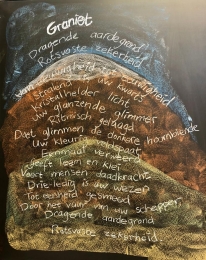 Graniet
Dragende aardegrond
Rotsvaste zekerheid
Van eeuwigheid tot eeuwigheid
Stralend uw kwarts
Kristalhelder licht
Uw glanzende glimmer
Ritmisch gelaagd
Diet glimmen de donkere hoornblende
Uw kleurrijke veldspaat
Eenmaal verweerd
Geeft leem en klei
Voort mensen daadkracht
Drie-ledig is uw wezen
Tot eenheid gesmeed
Door het vuur van uw schepper
Dragende aardegrond
Rotsvaste zekerheid.